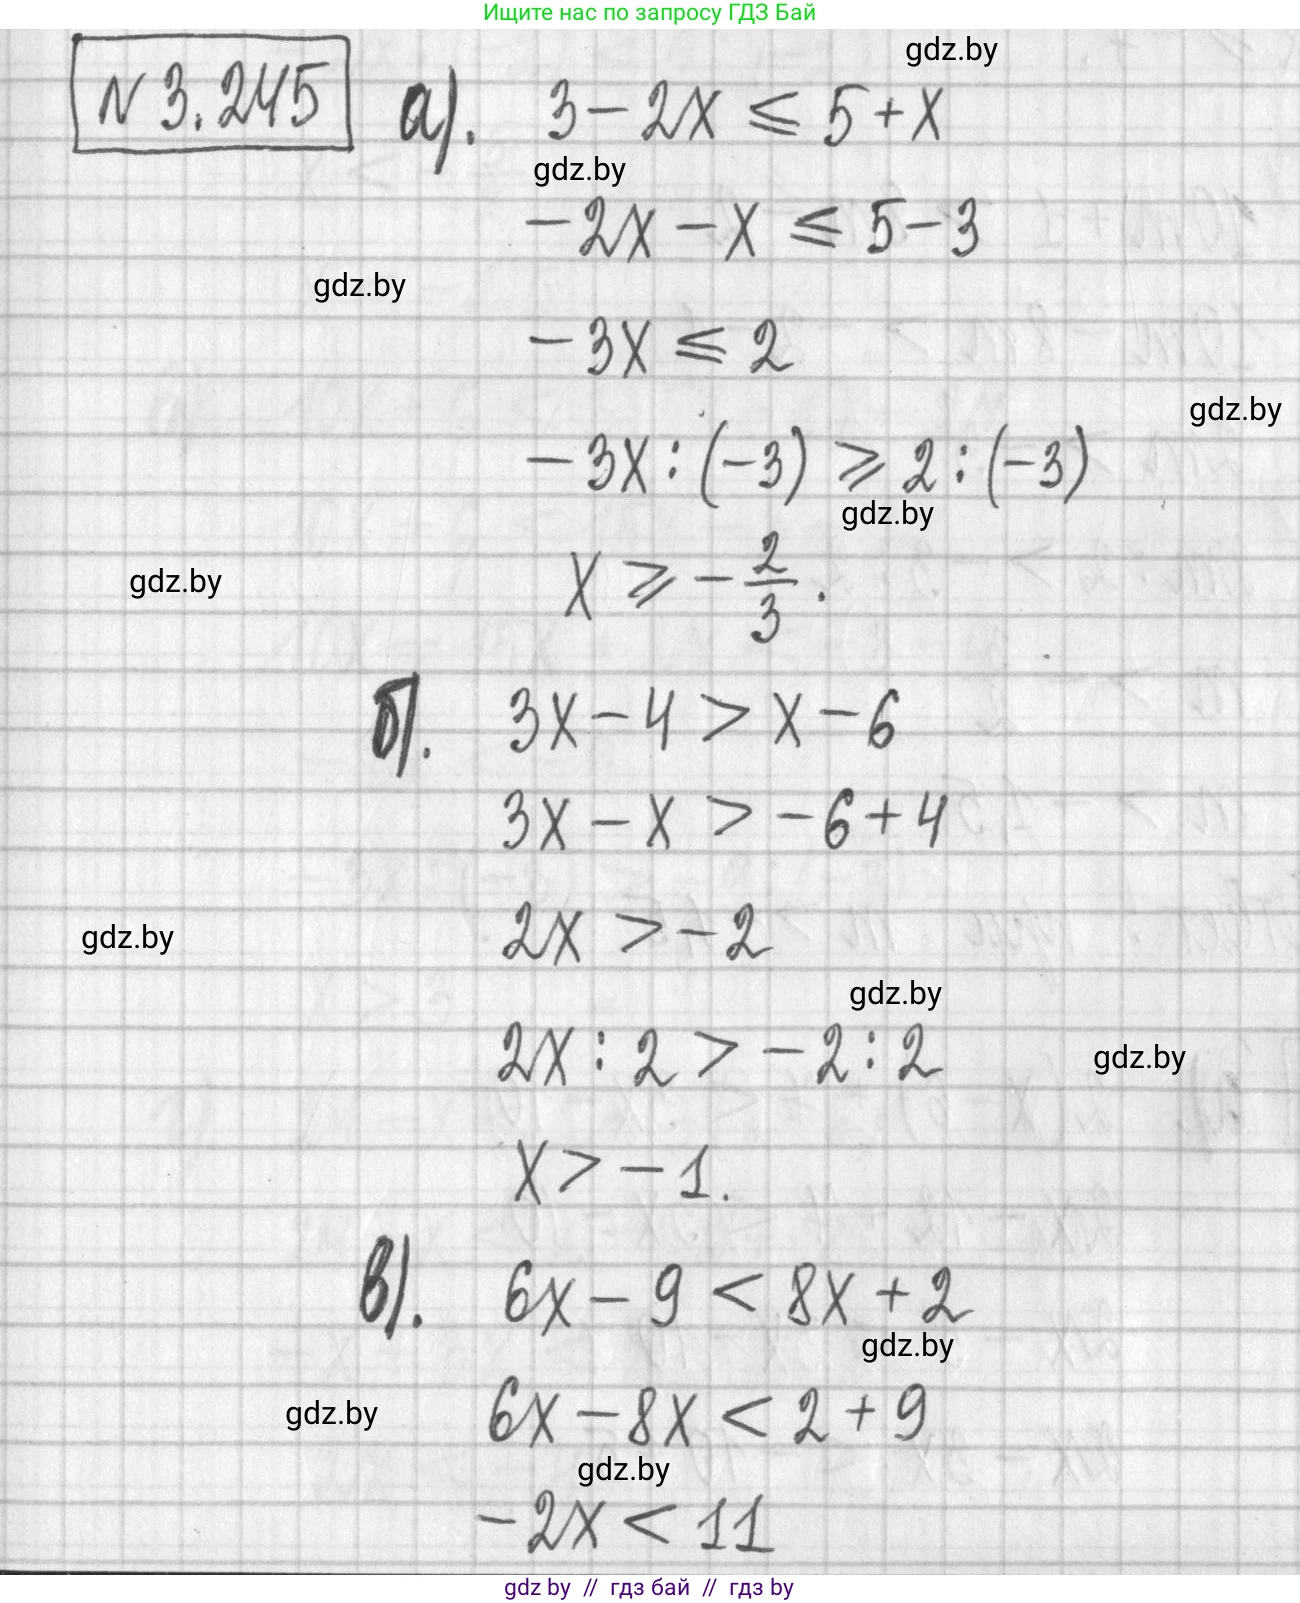 Ищите нас по запросу ГДЗ Бай
gdz.by
N 3.245 а). 3 - 2x ⩽ 5 + x
gdz.by
-2x - x ⩽ 5 - 3
gdz.by
-3x ⩽ 2
gdz.by
-3x : (-3) ⩾ 2 : (-3)
gdz.by
gdz.by
x ⩾ - 2/3 .
б). 3x - 4 > x - 6
3x - x > -6 + 4
2x > -2
gdz.by
gdz.by
2x : 2 > -2 : 2
gdz.by
x > -1.
в). 6x - 9 < 8x + 2
gdz.by
6x - 8x < 2 + 9
gdz.by
gdz.by
-2x < 11
gdz by // гдз бай // гдз by